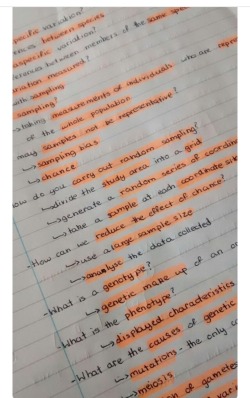 specific variation?
between species
aspecific variation?
between members of the same
variation measured?
with sampling
sampling?
→ taking measurements of individuals who are
of the whole population
may samples not be representative?
→ sampling bias
→ chance
How do you carry out random sampling?
→ divide the study area into a grid
→ generate a random series of
→ take a sample at each coordinate
- How can we reduce the effect of chance?
→ use a large sample size
→ analyse the data collected
- What is a genotype?
→ genetic make up of an
- What is the phenotype?
→ displayed characteristics
- What are the causes of genetic
→ mutations - the only
→ meiosis
of gametes